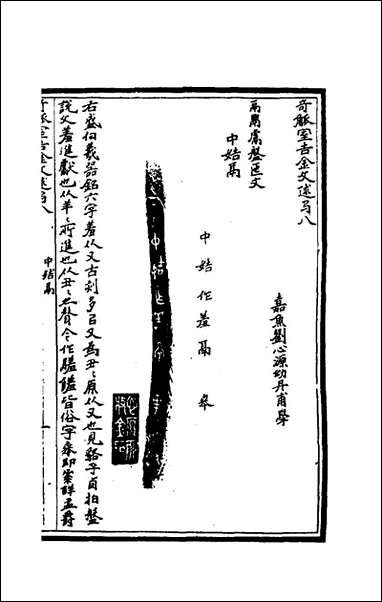 奇觚室吉金文述弓八
嘉魚劉心源幼丹甫學
鬲鬳盤匜文
中姞鬲
中姞作羞鬲 𠦪
右盛伯羲器銘六字羞从又古刻多吕又為丑丑原从又也見貉子卣拍盤
說文羞進獻也从羊羊所進也从丑丑亦聲今作膳饈皆俗字𠦪即崋詳孟爵
中姞鬲
奇觚室吉金文述弓八